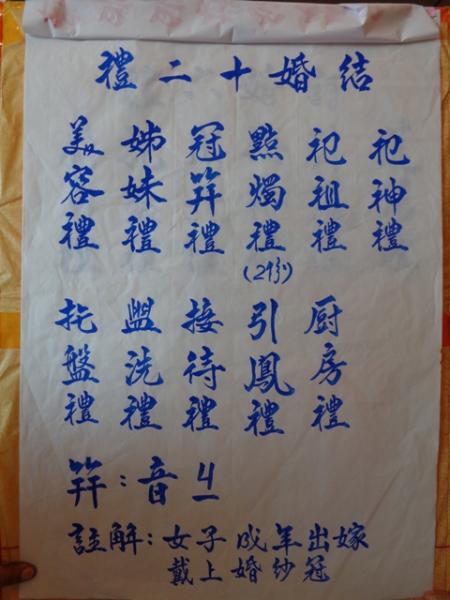 結婚十二禮
祀神禮
祀祖禮
點燭禮(2份)
冠筓禮
姊妹禮
美容禮
厨房禮
引鳳禮
接待禮
盥洗禮
托盤禮
筓:音ㄐ一
註解:女子成年出嫁
戴上婚紗冠